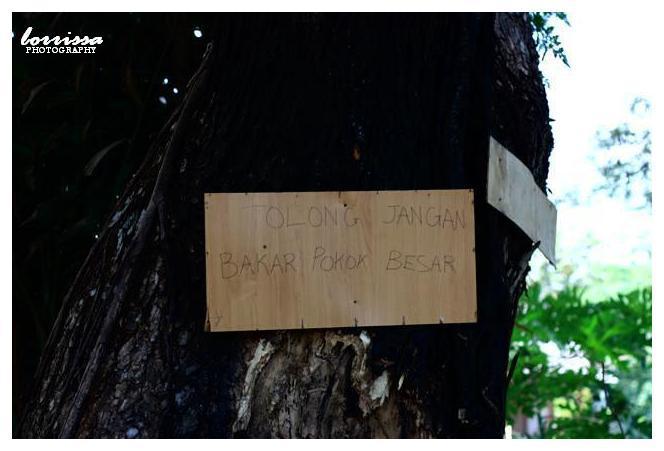 lorrissa
PHOTOGRAPHY
TOLONG JANGAN
BAKAR POKOK BESAR